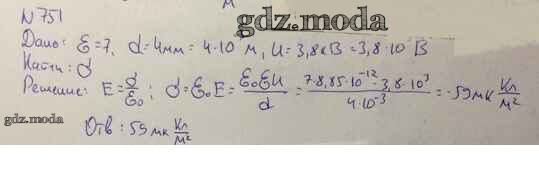 gdz.moda
N 751
Дано: ε=7, d=4мм=4·10 м, U=3,8кВ=3,8·10 В
Найти: σ
Решение: E=σ/ε₀; σ=ε₀E=ε₀εU/d=7·8,85·10⁻¹²·3,8·10³/4·10⁻³=59мк Кл/м²
gdz.moda
Отв: 59 мк Кл/м²